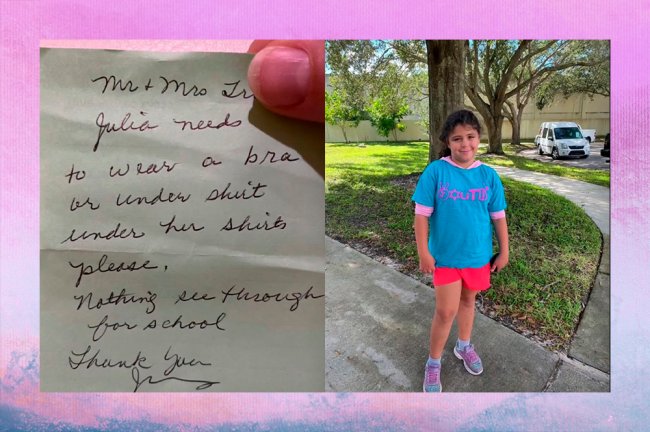 Mr + Mrs
Julia needs
to wear a bra
or under shirt
under her shirts
please.
Nothing see through
for school
Thank You